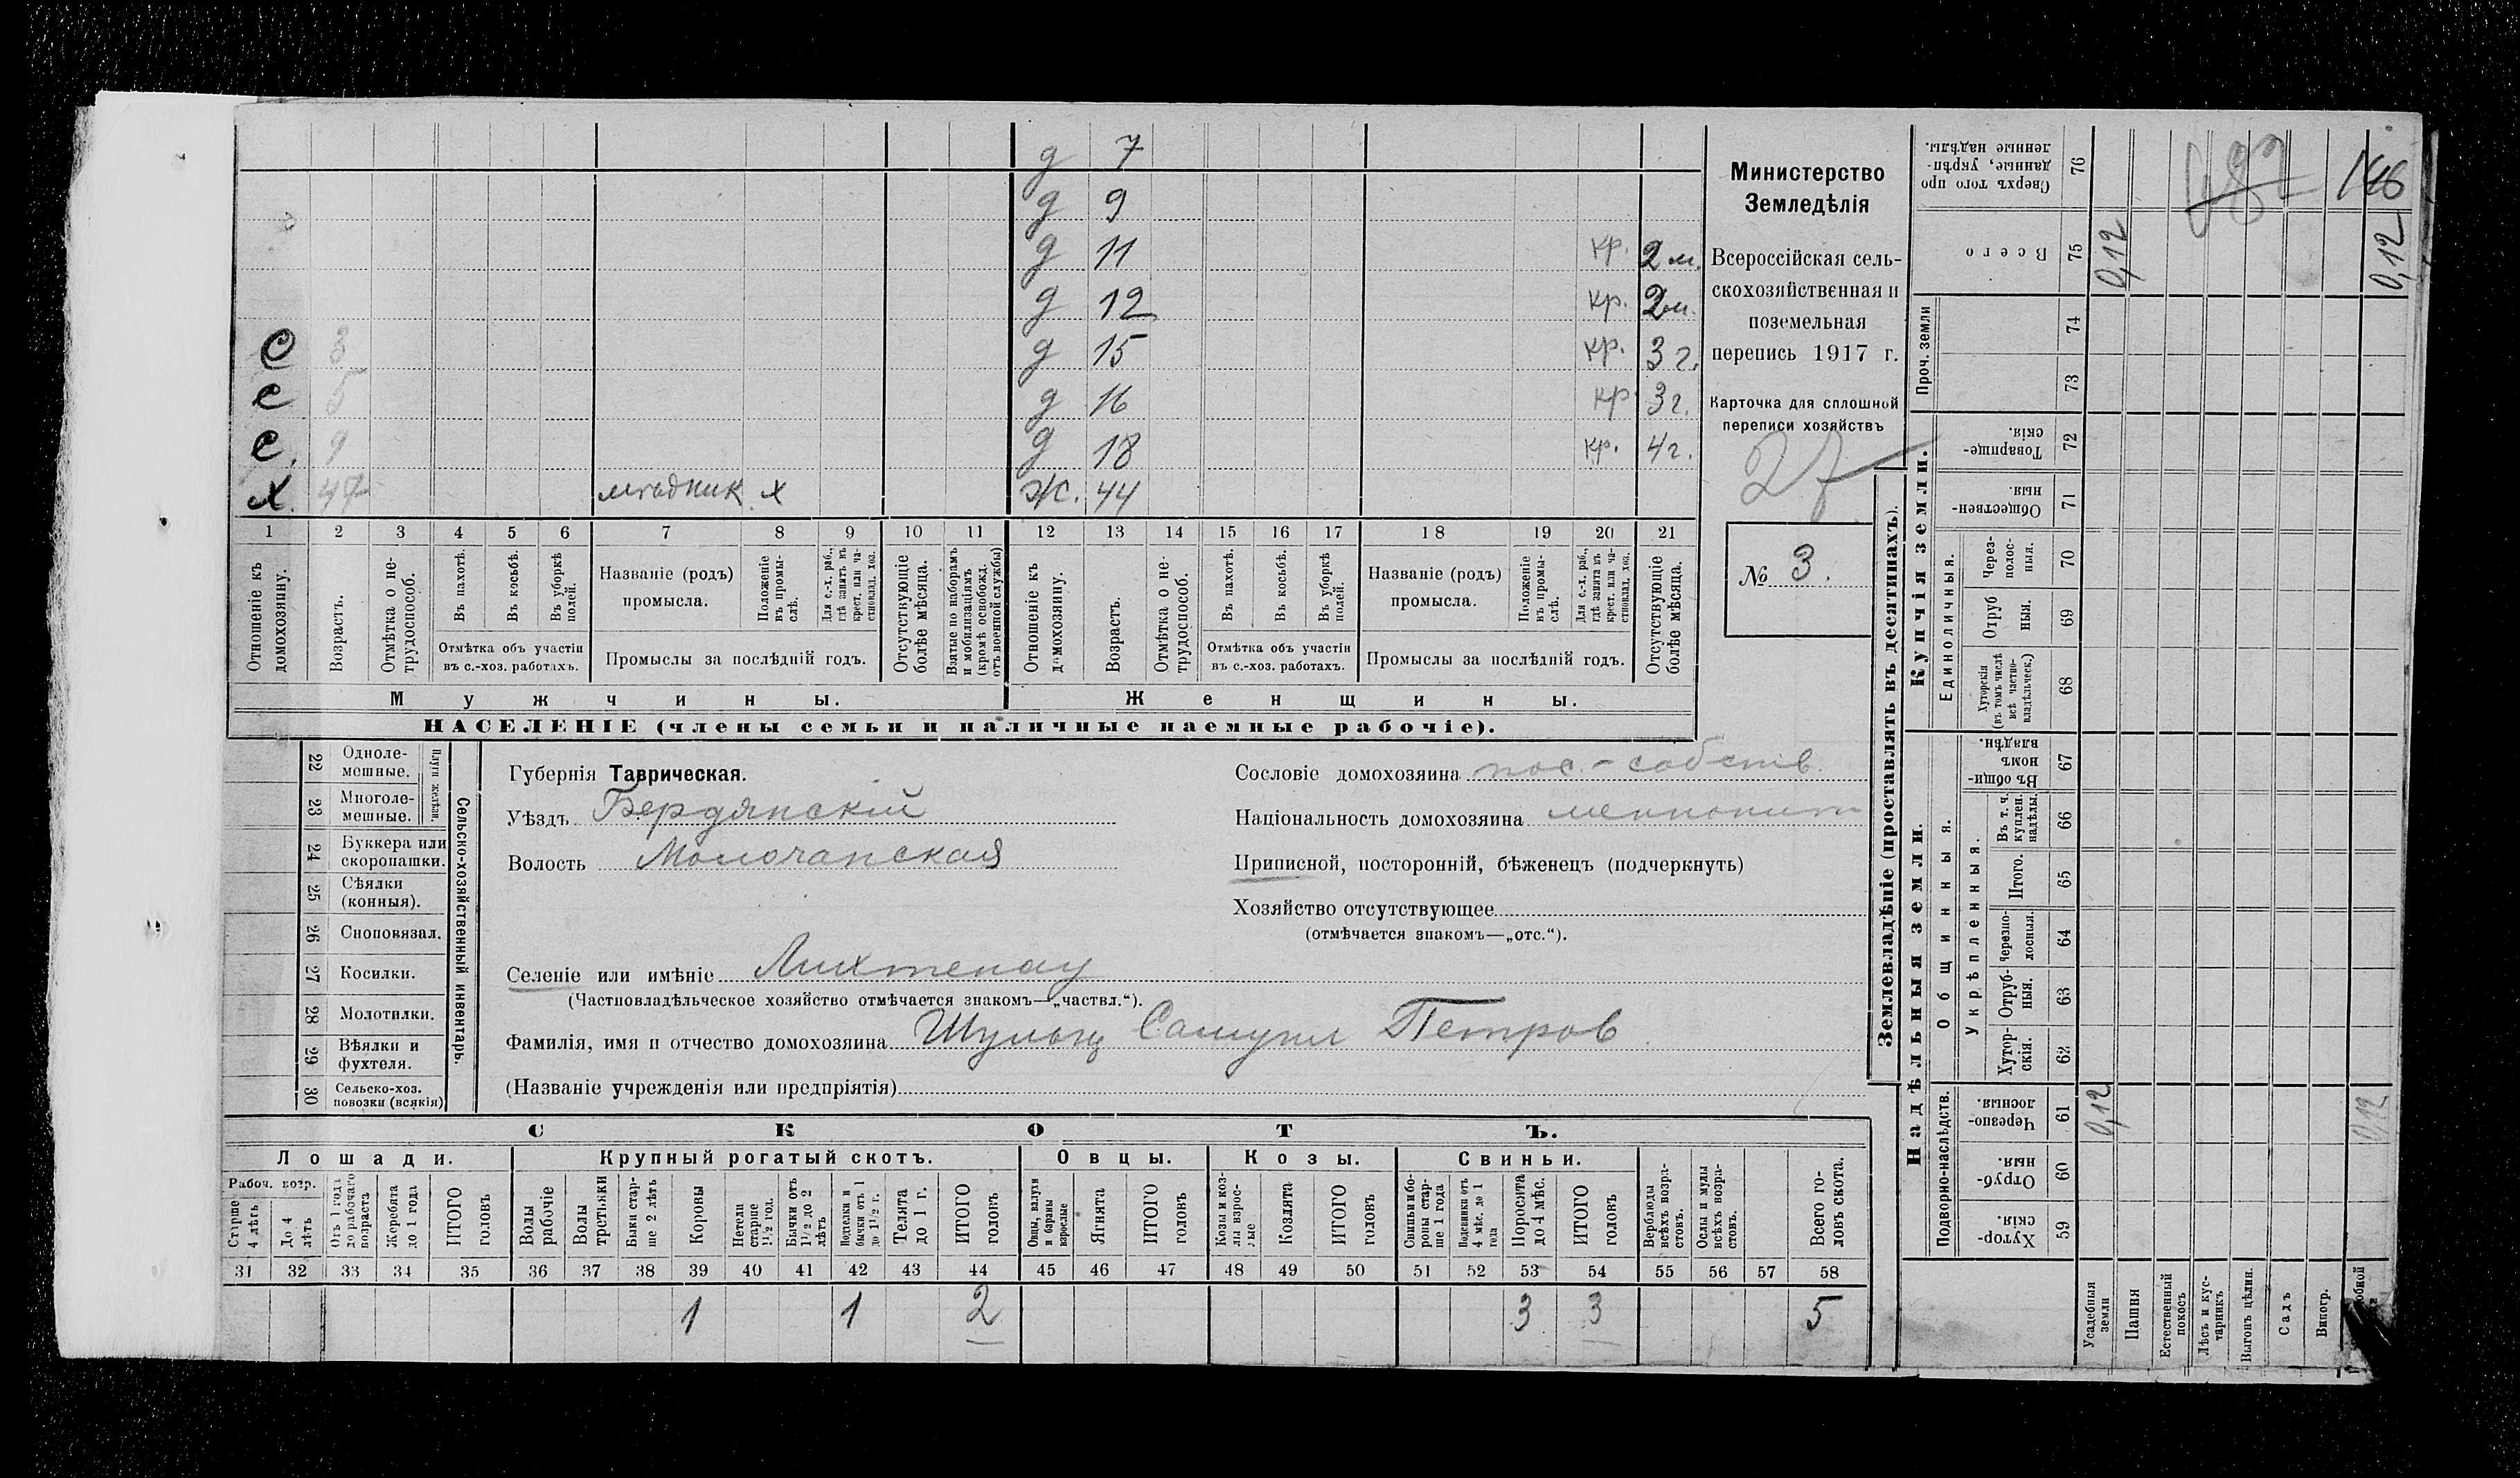 д 7
д 9
д 11 кр. 2 м.
д 12 кр. 2 м.
С 3 д 15 кр. 3 г.
с 5 д 16 кр 3 г.
с. 9 д 18 кр. 4 г.
х 47 мѣдник х Ж. 44
1 2 3 4 5 6 7 8 9 10 11 12 13 14 15 16 17 18 19 20 21
Отношеніе къ домохозяину.
Возрастъ.
Отмѣтка о не-трудоспособ.
Въ пахотѣ.
Въ косьбѣ.
Въ уборкѣ полей.
Отмѣтка объ участіи
въ с.-хоз. работахъ.
Названіе (родъ)
промысла.
Положеніе въ промы-слѣ.
Для с.-х. раб., гдѣ занятъ въ крест. или ча-стновлад. хоз.
Промыслы за послѣдній годъ.
Отсутствующіе болѣе мѣсяца.
Взятые по наборамъ и мобилизаціямъ (кромѣ освобожд. отъ военной службы)
Отношеніе къ домохозяину.
Возрастъ.
Отмѣтка о не-трудоспособ.
Въ пахотѣ.
Въ косьбѣ.
Въ уборкѣ полей.
Отмѣтка объ участіи
въ с.-хоз. работахъ.
Названіе (родъ)
промысла.
Положеніе въ промы-слѣ.
Для с.-х. раб., гдѣ занята въ крест. или ча-стновлад. хоз.
Промыслы за послѣдній годъ.
Отсутствующіе болѣе мѣсяца.
Мужчины. Женщины.
НАСЕЛЕНІЕ (члены семьи и наличные наемные рабочіе).
Министерство
Земледѣлія
Всероссійская сель-
скохозяйственная и
поземельная
перепись 1917 г.
Карточка для сплошной
переписи хозяйствъ
27
№ 3.
Сельско-хозяйственный инвентарь.
Плуги желѣзн.
22 Одноле-
мешные.
23 Многоле-
мешные.
24 Буккера или
скоропашки.
25 Сѣялки
(конныя).
26 Сноповязал.
27 Косилки.
28 Молотилки.
29 Вѣялки и
фухтеля.
30 Сельско-хоз.
повозки (всякія)
Губернія Таврическая.
Уѣздъ Бердянскій
Волость Молочанская
Селеніе или имѣніе Лихтенау
(Частновладѣльческое хозяйство отмѣчается знакомъ—„частвл.“).
Фамилія, имя и отчество домохозяина Шульц Самуил Петров
(Названіе учрежденія или предпріятія)
Сословіе домохозяина пос.-собств.
Національность домохозяина меннонит
Приписной, посторонній, бѣженецъ (подчеркнуть)
Хозяйство отсутствующее
(отмѣчается знакомъ—„отс.“).
СКОТЪ.
Лошади. Крупный рогатый скотъ. Овцы. Козы. Свиньи.
Рабоч. возр.
Старше 4 лѣтъ
До 4 лѣтъ
Отъ 1 года до рабочаго возраста
Жеребята до 1 года
ИТОГО головъ
Волы рабочіе
Волы третьяки
Быки стар-ше 2 лѣтъ
Коровы
Нетели старше 1½ год.
Бычки отъ 1½ до 2 лѣтъ
бычки отъ 1 до 1½ г.
Телята до 1 г.
ИТОГО головъ
Овцы, валухи и бараны взрослые
Ягнята
ИТОГО головъ
Козы и коз-лы взрос-лые
Козлята
ИТОГО головъ
Свиньи и бо-ровы стар-ше 1 года
Подсвинки отъ 4 мѣс. до 1 года
Поросята до 4 мѣс.
ИТОГО головъ
Верблюды всѣхъ возра-стовъ.
Ослы и мулы всѣхъ возра-стовъ.
Всего го-ловъ скота.
31 32 33 34 35 36 37 38 39 40 41 42 43 44 45 46 47 48 49 50 51 52 53 54 55 56 57 58
1 1 2 3 3 5
Землевладѣніе (проставлять въ десятинахъ).
Купчія земли.
Надѣльныя земли.
Сверхъ того про данные, укрѣп-ленные надѣлы. 76
Всего 75
Проч. земли 74 73
Товарище-скія. 72
Обществен-ныя. 71
Единоличныя.
Через-полос-ныя. 70
Отруб ныя. 69
Хуторскія (въ томъ числѣ всѣ частно-владѣльческ.) 68
Общинныя.
Въ общин-номъ владѣн. 67
Укрѣпленныя.
Въ т. ч. куплен. надѣлы. 66
Итого. 65
Черезпо-лосныя. 64
Отруб-ныя. 63
Хутор-скія. 62
Подворно-наслѣдств.
Черезпо-лосныя. 61
Отруб-ныя. 60
Хутор-скія. 59
Усадебныя земли
Пашня
Естественный покосъ
Лѣсъ и кус-тарникъ
Выгонъ цѣлин.
Садъ
Виногр.
0,12
0,12
0,12
0,12
146